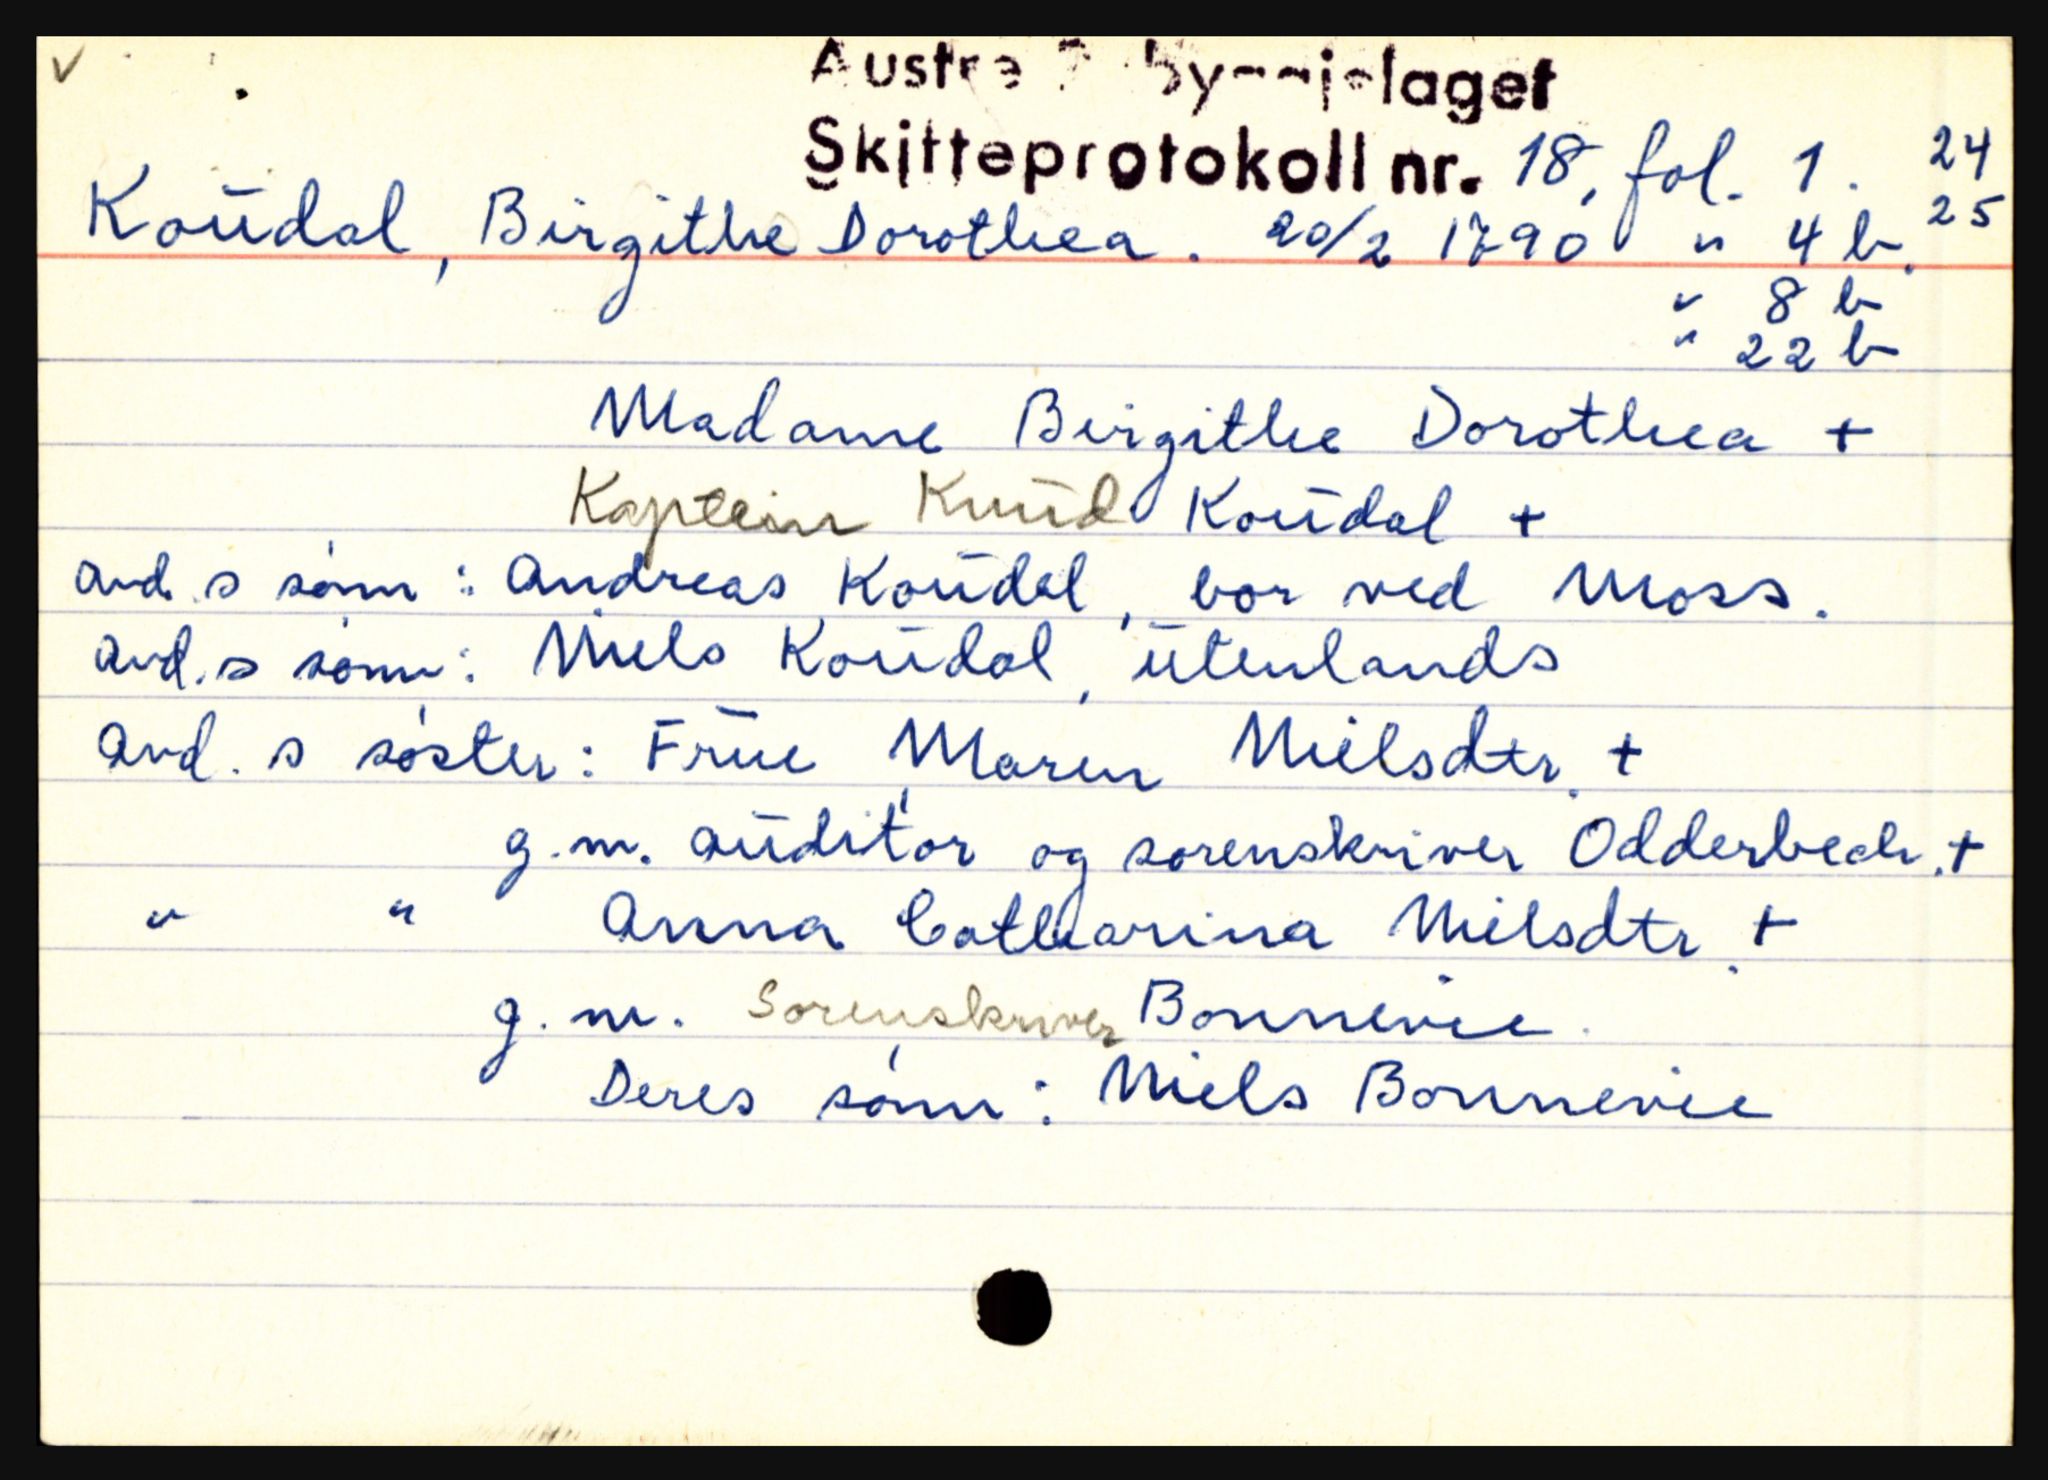 v
Skifteprotokoll nr. 18, fol. 1. 24
Koudal, Birgithe Dorothea. 20/2 1790 " 4 b. 25
" 8 b
" 22 b
Madame Birgithe Dorothea +
Kaptein Knud Koudal +
avd. s sønn : Andreas Koudal, bor ved Moss.
avd. s sønn : Niels Koudal, utenlands
avd. s søster : Frue Maren Nielsdtr. +
g.m. auditør og sorenskriver Odderbech. +
" " Anna Catharina Nielsdtr. +
g.m. Sorenskriver Bonnevie.
Deres sønn : Niels Bonnevie